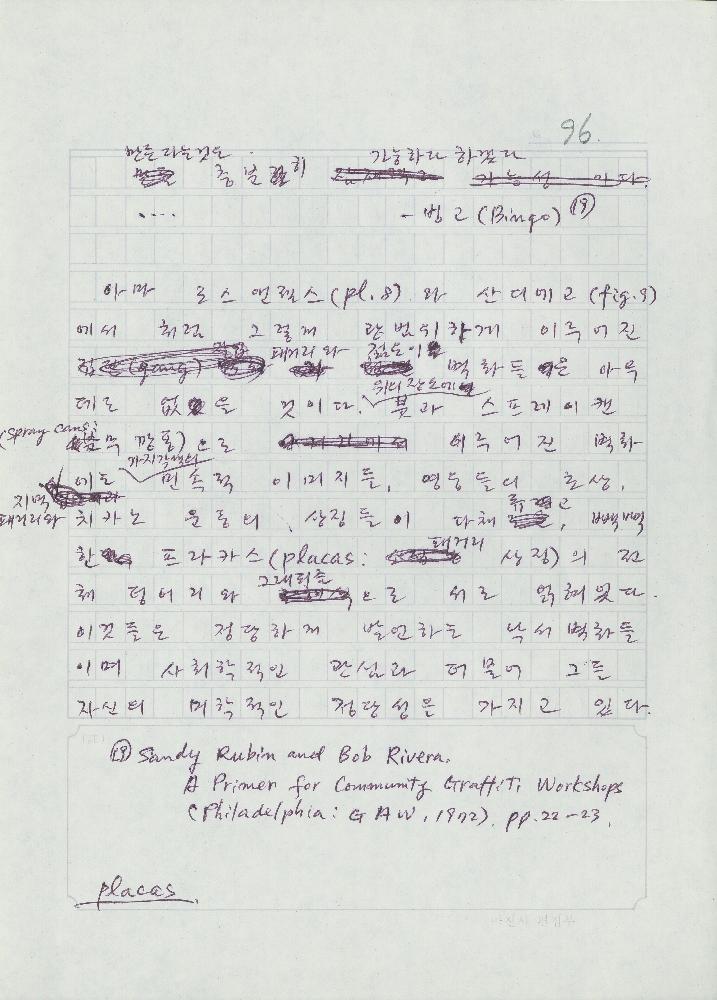 96.
만든다는것은 가능하다 하겠다
충분히
.... - 빙고 (Bingo) ⑲
아마 로스앤젤스 (pl.8) 와 산디에고 (fig.9)
에서 처럼 그렇게 광범위하게 이루어진
패거리와 정도이
벽화들은 아무
위의 잔도에
데도 없을 것이다. 붓과 스프레이캔
(spray cans:
깡통)으로 이루어진 벽화
여가지각색의
에는 민속적 이미지들, 영웅들의 초상,
지역
패거리와 치카노 운동의 상징들이 다채롭고, 빽빽
한 프라카스(placas: 패거리 상징)의 전
그래피츠
체 덩어리와 으로 서로 얽혀있다.
이것들은 정당하게 발언하는 낙서벽화들
이며 사회학적인 관심과 더불어 그들
자신의 미학적인 정당성을 가지고 있다.
⑲ Sandy Rubin and Bob Rivera,
A Primer for Community Graffiti Workshops
(Philadelphia: GAW, 1972), pp.22-23.
placas